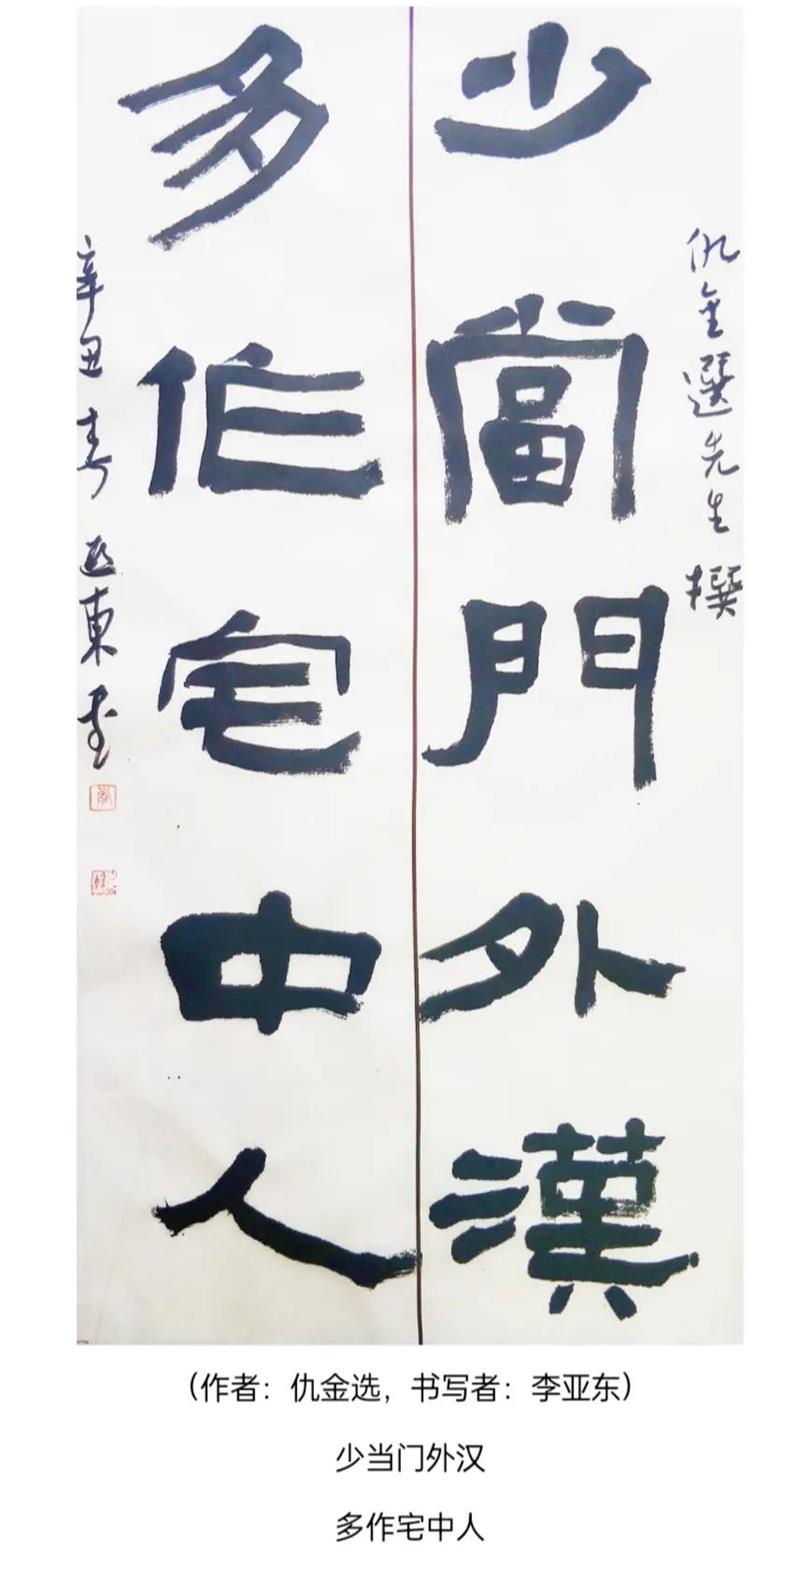 仇金選先生撰
少當門外漢
多作宅中人
辛丑春亞東書
（作者：仇金选，书写者：李亚东）
少当门外汉
多作宅中人